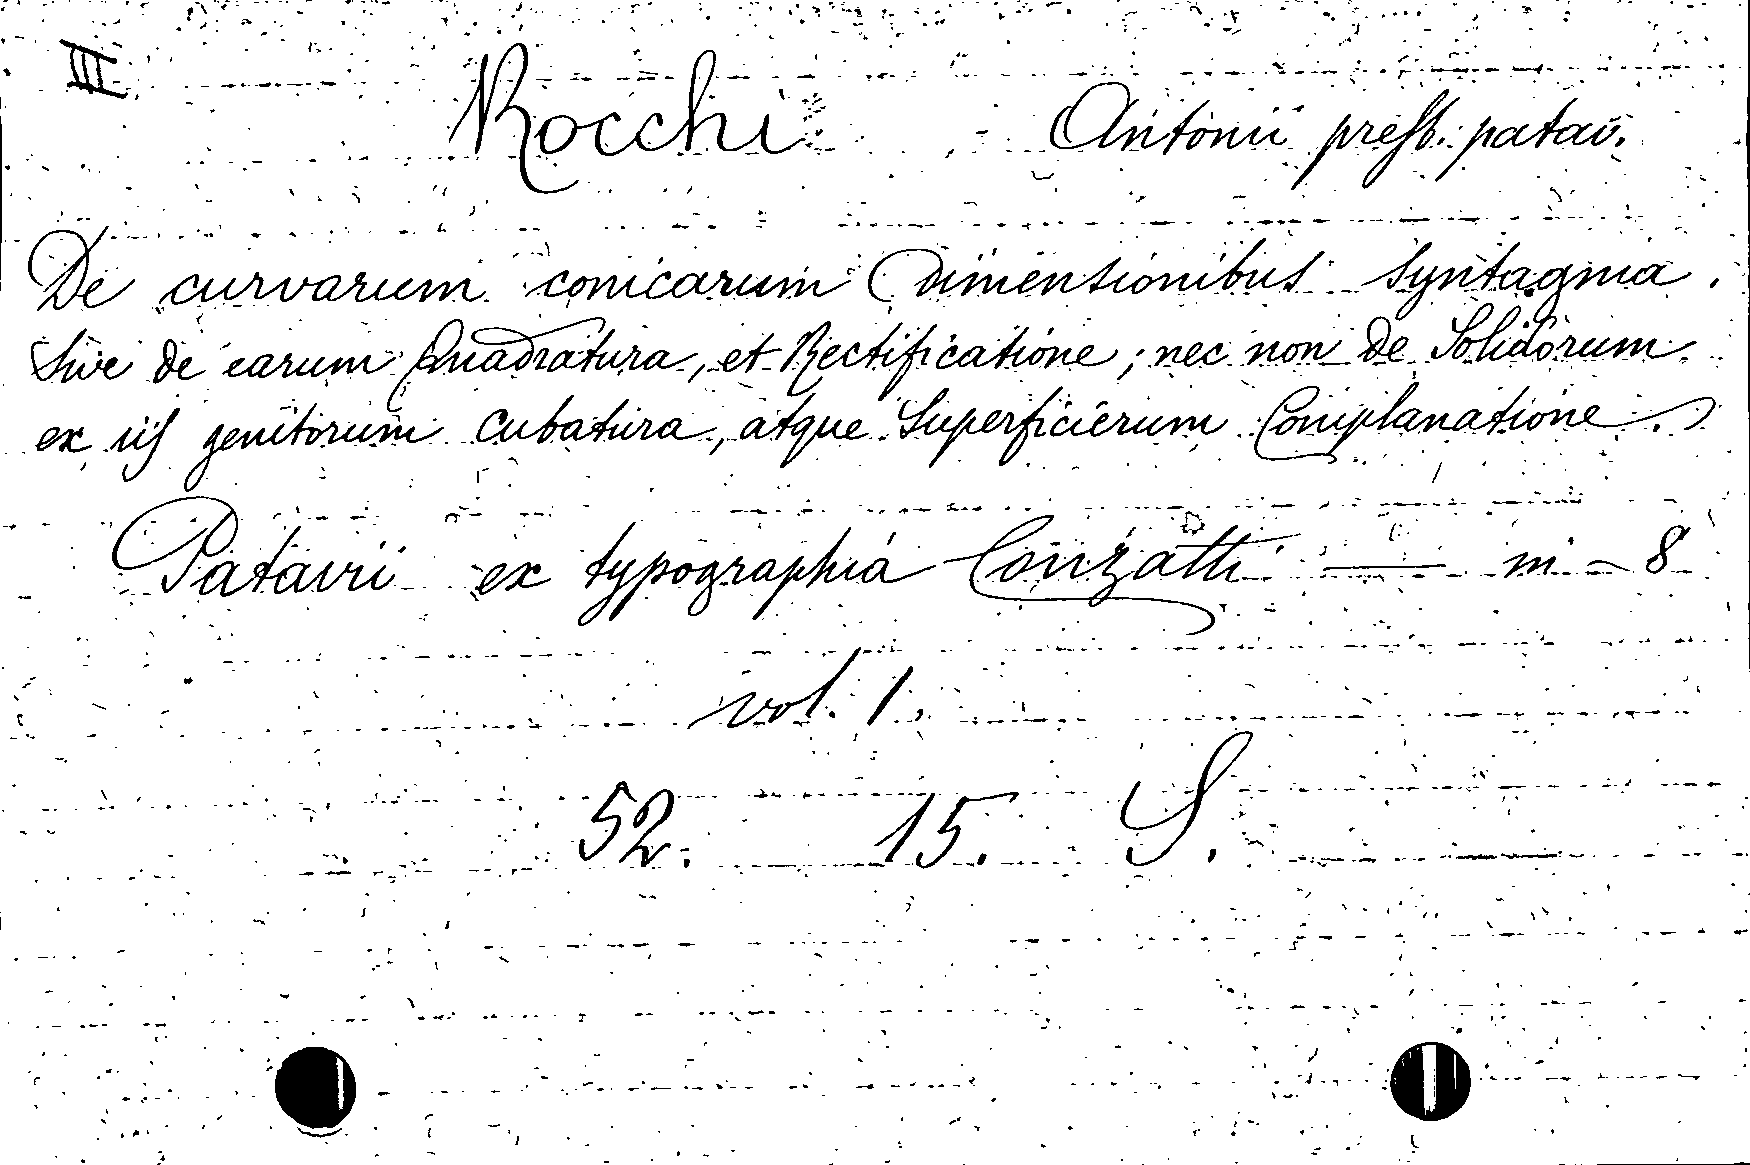 III
Rocchi Antonii presb. patav.
De curvarum conicarum Dimensionibus Syntagma.
Sive de earum Quadratura, et Rectificatione; nec non de Solidorum
ex iis genitorum cubatura, atque Superficierum Complanatione.
Patavii ex typographia Conzatti — in - 8
vol. 1.
52. 15. S.